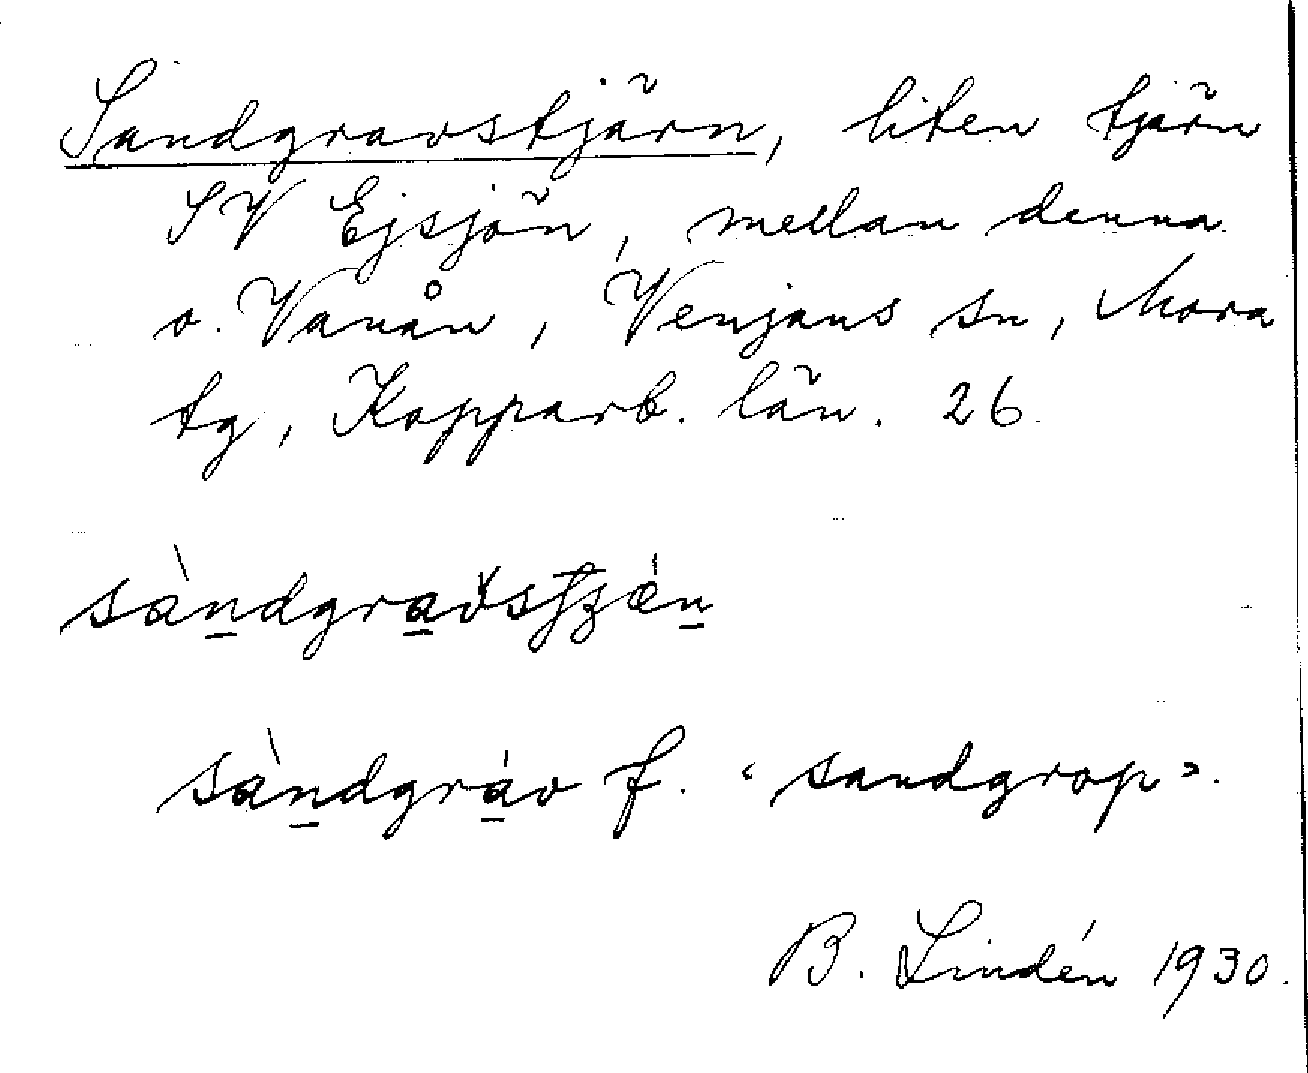 Sandgravstjärn, liten tjärn
SV Ejsjön, mellan denna
o. Vanån, Venjans sn, Mora
tg, Kopparb. län. 26.
sàndgrav f. "sandgrop".
B. Lindén 1930.